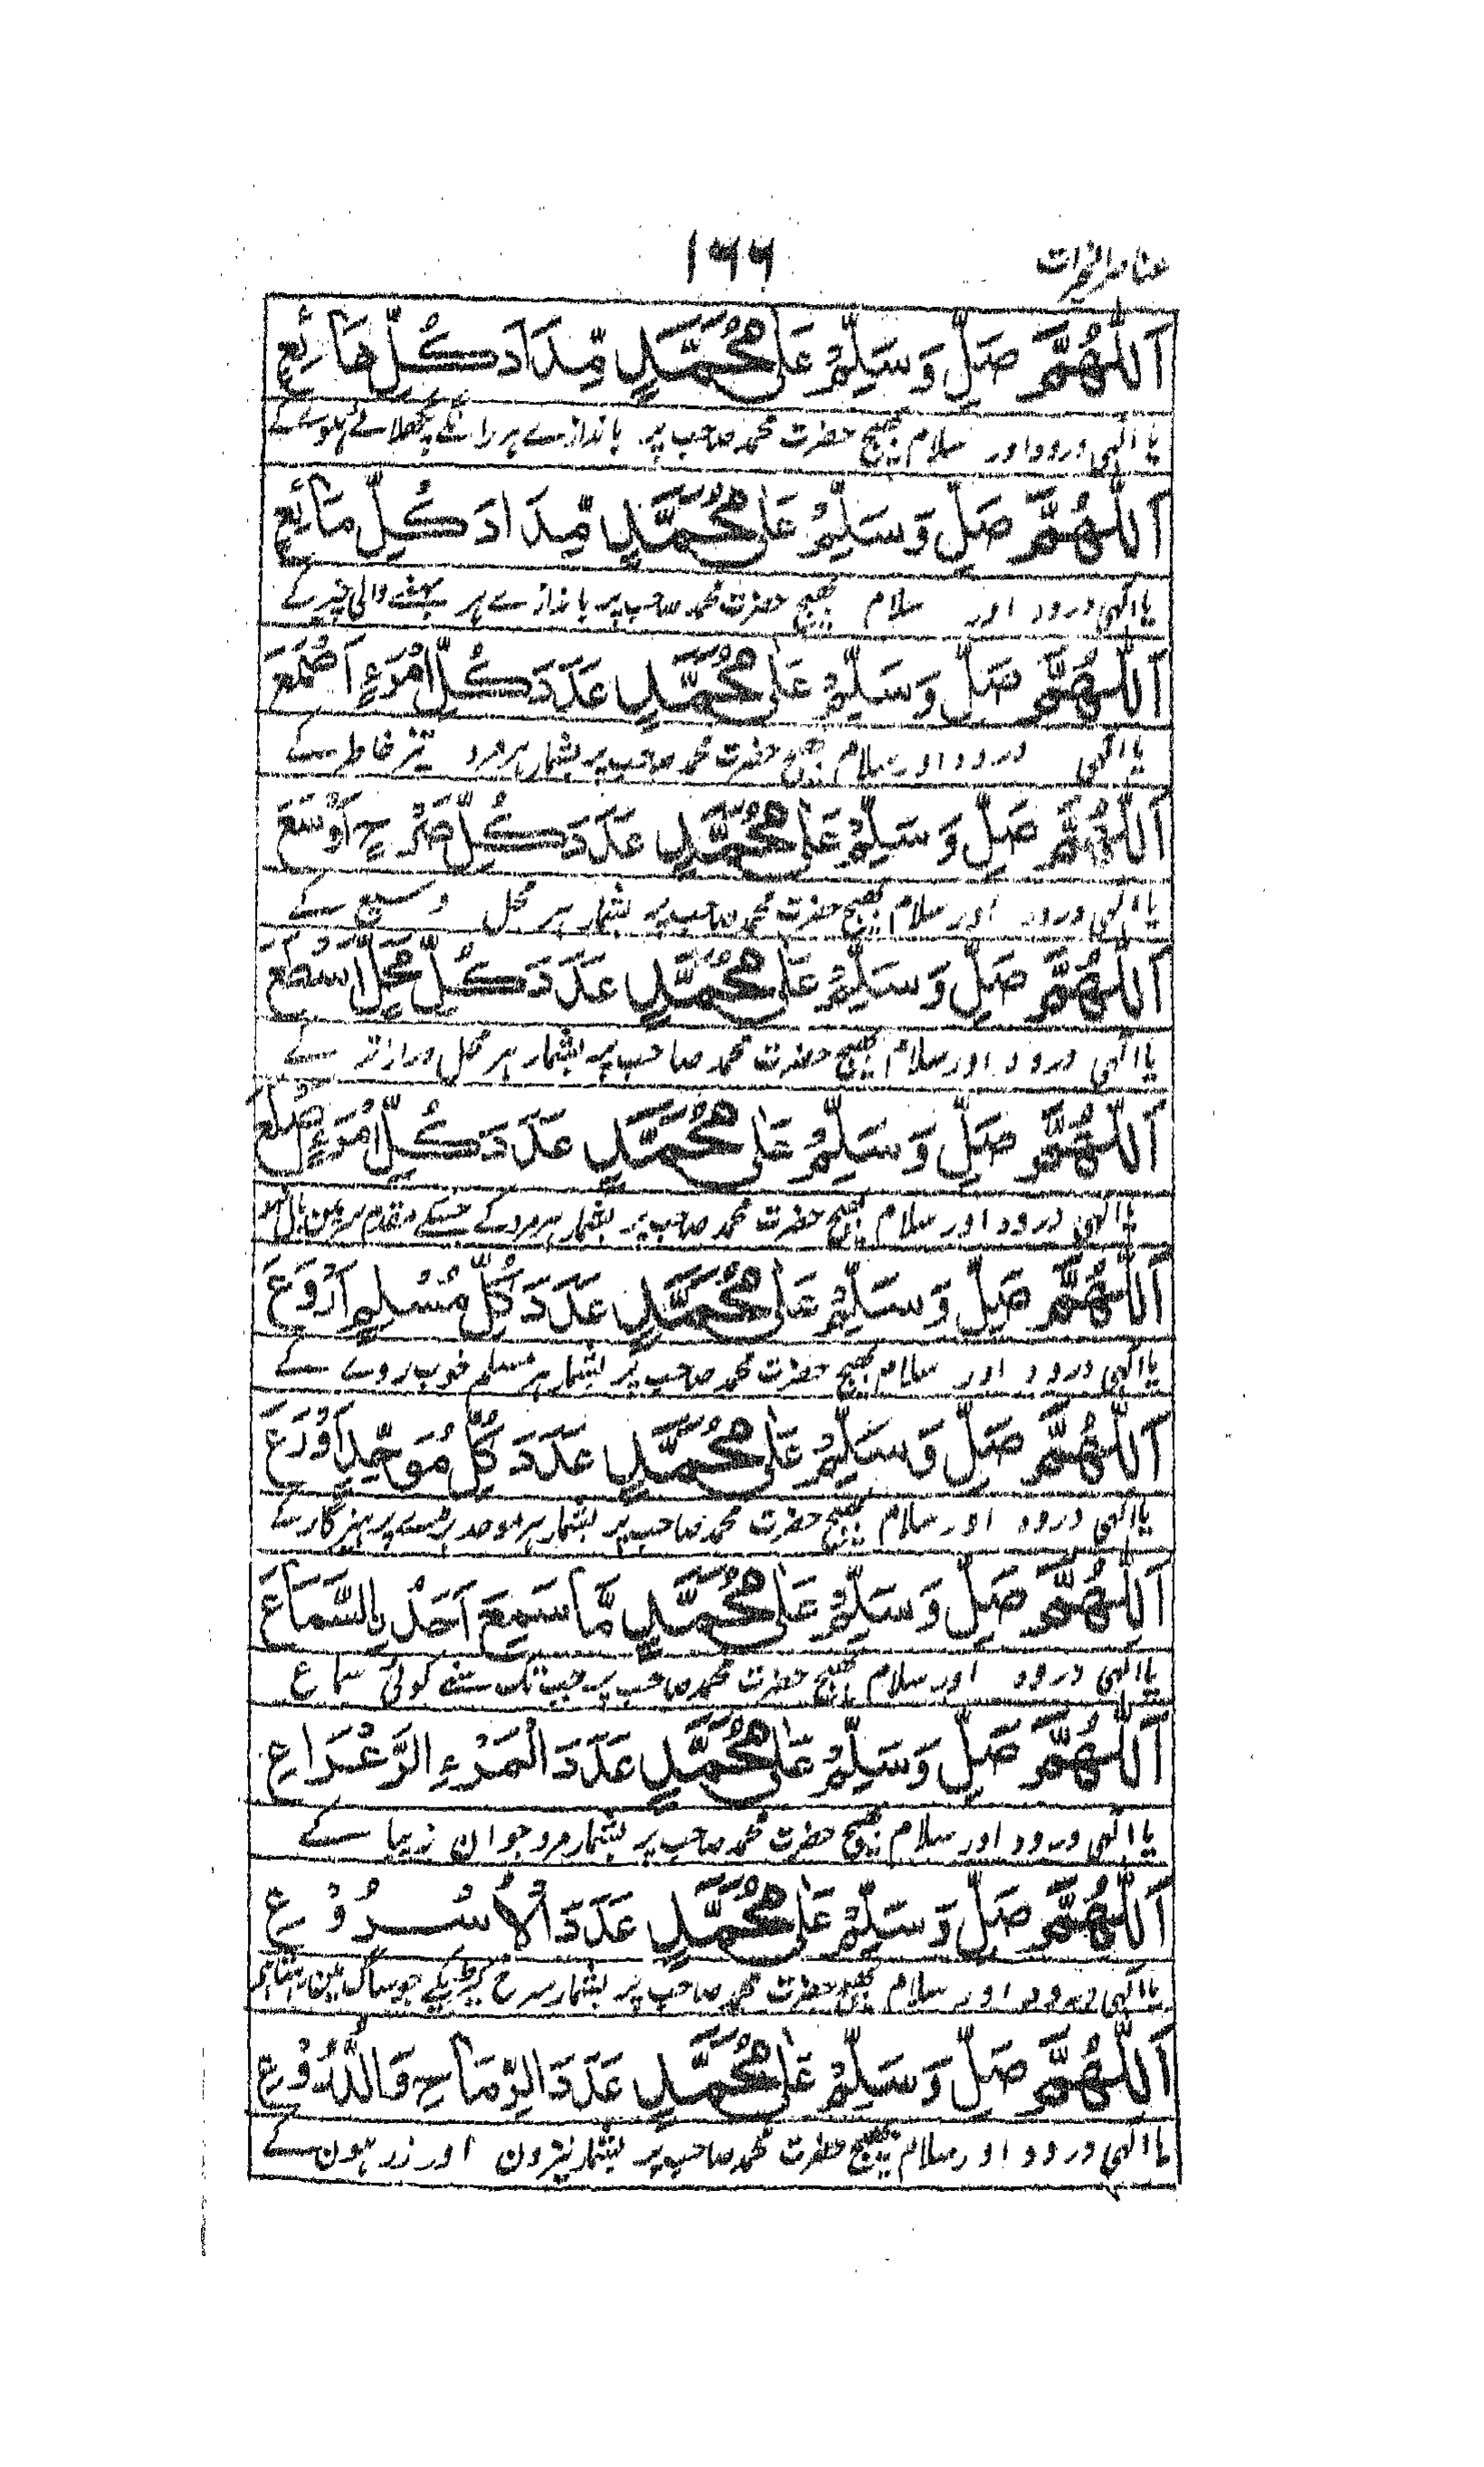 عناصر الخیرات ۱۶۶
اَللّٰهُمَّ صَلِّ وَسَلِّمْ عَلٰى مُحَمَّدٍ مِّدَادَ كُلِّ هَآئِعٍ
یا الٰہی درود اور سلام بھیج حضرت محمد صاحب پر باندازے ہر رانگے پگھلائے ہوئے کے
اَللّٰهُمَّ صَلِّ وَسَلِّمْ عَلٰى مُحَمَّدٍ مِّدَادَ كُلِّ مَآئِعٍ
یا الٰہی درود اور سلام بھیج حضرت محمد صاحب پر باندازے ہر بہنے والی چیز کے
اَللّٰهُمَّ صَلِّ وَسَلِّمْ عَلٰى مُحَمَّدٍ عَدَدَ كُلِّ امْرَءٍ اَصْمَعَ
یا الٰہی درود اور سلام بھیج حضرت محمد صاحب پر بشمار ہر مرد تیز خاطر کے
اَللّٰهُمَّ صَلِّ وَسَلِّمْ عَلٰى مُحَمَّدٍ عَدَدَ كُلِّ صَرْحٍ اَوْسَعَ
یا الٰہی درود اور سلام بھیج حضرت محمد صاحب پر بشمار ہر محل وسیع کے
اَللّٰهُمَّ صَلِّ وَسَلِّمْ عَلٰى مُحَمَّدٍ عَدَدَ كُلِّ مَحَلٍّ اَسْطَعَ
یا الٰہی درود اور سلام بھیج حضرت محمد صاحب پر بشمار ہر محل دراز تر کے
اَللّٰهُمَّ صَلِّ وَسَلِّمْ عَلٰى مُحَمَّدٍ عَدَدَ كُلِّ امْرَءٍ اَصْلَعَ
یا الٰہی درود اور سلام بھیج حضرت محمد صاحب پر بشمار ہر مرد کے جسکے مقدم سر مین بال نہو
اَللّٰهُمَّ صَلِّ وَسَلِّمْ عَلٰى مُحَمَّدٍ عَدَدَ كُلِّ مُسْلِمٍ اَرْوَعَ
یا الٰہی درود اور سلام بھیج حضرت محمد صاحب پر بشمار ہر مسلم خوب روے کے
اَللّٰهُمَّ صَلِّ وَسَلِّمْ عَلٰى مُحَمَّدٍ عَدَدَ كُلِّ مُوَحِّدٍ اَوْرَعَ
یا الٰہی درود اور سلام بھیج حضرت محمد صاحب پر بشمار ہر موحد بڑے پرہیزگار کے
اَللّٰهُمَّ صَلِّ وَسَلِّمْ عَلٰى مُحَمَّدٍ مَّا سَمِعَ اَحَدٌ بِالسَّمَاعَ
یا الٰہی درود اور سلام بھیج حضرت محمد صاحب پر جب تک سنے کوئی سماع
اَللّٰهُمَّ صَلِّ وَسَلِّمْ عَلٰى مُحَمَّدٍ عَدَدَ الْمَرْءِ الرَّعْرَاعِ
یا الٰہی درود اور سلام بھیج حضرت محمد صاحب پر بشمار مرد جوان زیبا کے
اَللّٰهُمَّ صَلِّ وَسَلِّمْ عَلٰى مُحَمَّدٍ عَدَدَ الْاُسْرُوْعِ
یا الٰہی درود اور سلام بھیج حضرت محمد صاحب پر بشمار سرخ کیڑیکے جو ساگ مین رہتا ہی
اَللّٰهُمَّ صَلِّ وَسَلِّمْ عَلٰى مُحَمَّدٍ عَدَدَ الرِّمَاحِ وَالدُّرُوْعِ
یا الٰہی درود اور سلام بھیج حضرت محمد صاحب پر بشمار نیزون اور زرہون کے